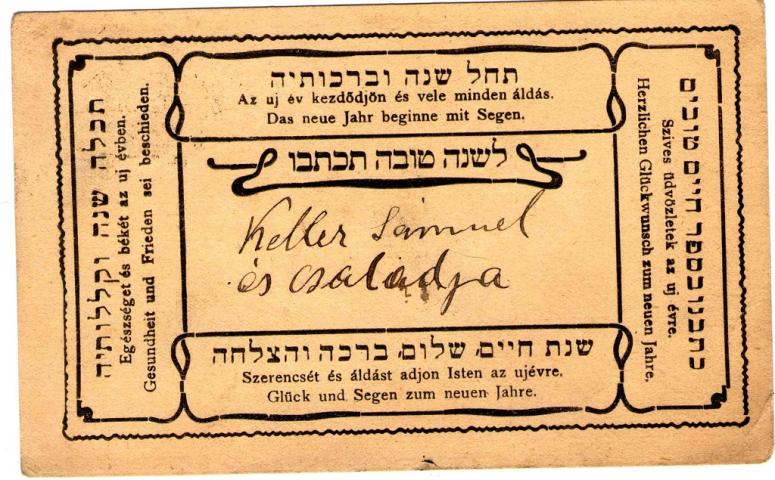 תחל שנה וברכותיה
Az uj év kezdődjön és vele minden áldás.
Das neue Jahr beginne mit Segen.
לשנה טובה תכתבו
Keller Sámuel
és családja
שנת חיים, שלום, ברכה והצלחה
Szerencsét és áldást adjon Isten az ujévre.
Glück und Segen zum neuen Jahre.
כתבנו בספר חיים טובים
Szives üdvözletek az uj évre.
Herzlichen Glückwunsch zum neuen Jahre.
תכלה שנה וקללותיה
Egészséget és békét az uj évben.
Gesundheit und Frieden sei beschieden.